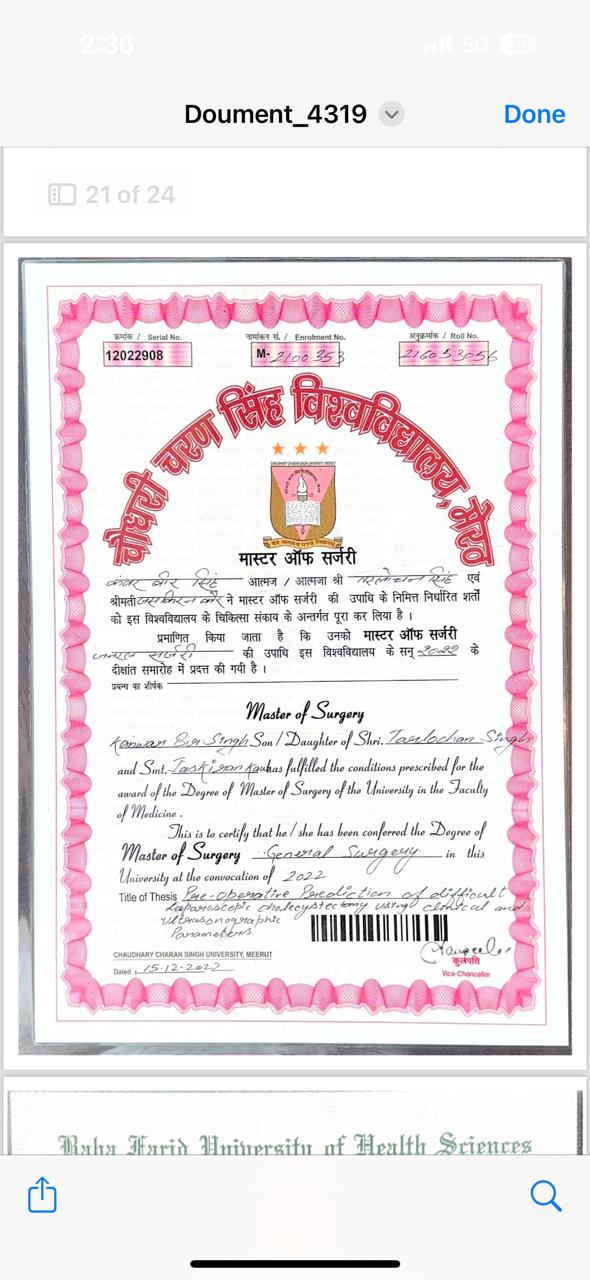 2:36
5G
30
Doument_4319
Done
21 of 24
क्रमांक / Serial No.
12022908
नामांकन सं. / Enrolment No.
M- 2100353
अनुक्रमांक / Roll No.
216053056
चौधरी चरण सिंह विश्वविद्यालय, मेरठ
CHAUDHARY CHARAN SINGH UNIVERSITY, MEERUT
मास्टर ऑफ सर्जरी
कंवर बीर सिंह आत्मज / आत्मजा श्री तरलोचन सिंह एवं
श्रीमती जसकिरन कौर ने मास्टर ऑफ सर्जरी की उपाधि के निमित्त निर्धारित शर्तों
को इस विश्वविद्यालय के चिकित्सा संकाय के अन्तर्गत पूरा कर लिया है ।
प्रमाणित किया जाता है कि उनको मास्टर ऑफ सर्जरी
जनरल सर्जरी की उपाधि इस विश्वविद्यालय के सन् २०२२ के
दीक्षांत समारोह में प्रदत्त की गयी है ।
प्रबन्ध का शीर्षक
Master of Surgery
Kanwar Bir Singh Son / Daughter of Shri. Tarlochan Singh
and Smt. Jaskiran Kaur has fulfilled the conditions prescribed for the
award of the Degree of Master of Surgery of the University in the Faculty
of Medicine .
This is to certify that he / she has been conferred the Degree of
Master of Surgery General Surgery in this
University at the convocation of 2022
Title of Thesis Pre-operative Prediction of difficult
Laparoscopic cholecystectomy using clinical and
ultrasonographic
Parameters
CHAUDHARY CHARAN SINGH UNIVERSITY, MEERUT
Dated : 15.12.2022
कुलपति
Vice-Chancellor
Baba Farid University of Health Sciences